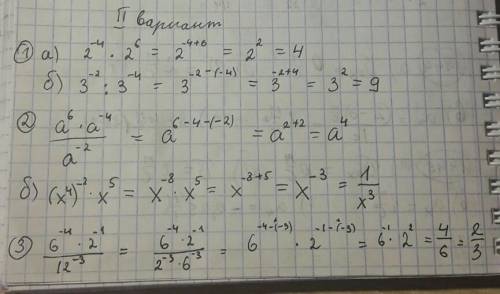 II вариант
① а) 2⁻⁴ · 2⁶ = 2⁻⁴⁺⁶ = 2² = 4
б) 3⁻² : 3⁻⁴ = 3⁻²⁻⁽⁻⁴⁾ = 3⁻²⁺⁴ = 3² = 9
② (a⁶ · a⁻⁴) / a⁻² = a⁶⁻⁴⁻⁽⁻²⁾ = a²⁺² = a⁴
б) (x⁴)⁻² · x⁵ = x⁻⁸ · x⁵ = x⁻⁸⁺⁵ = x⁻³ = 1/x³
③ (6⁻⁴ · 2⁻¹) / 12⁻³ = (6⁻⁴ · 2⁻¹) / (2⁻³ · 6⁻³) = 6⁻⁴⁻⁽⁻³⁾ · 2⁻¹⁻⁽⁻³⁾ = 6⁻¹ · 2² = 4/6 = 2/3